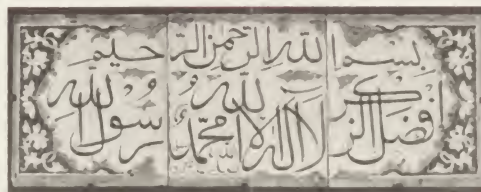 بسم الله الرحمن الرحيم
افضل الذكر لا اله الا الله محمد رسول الله